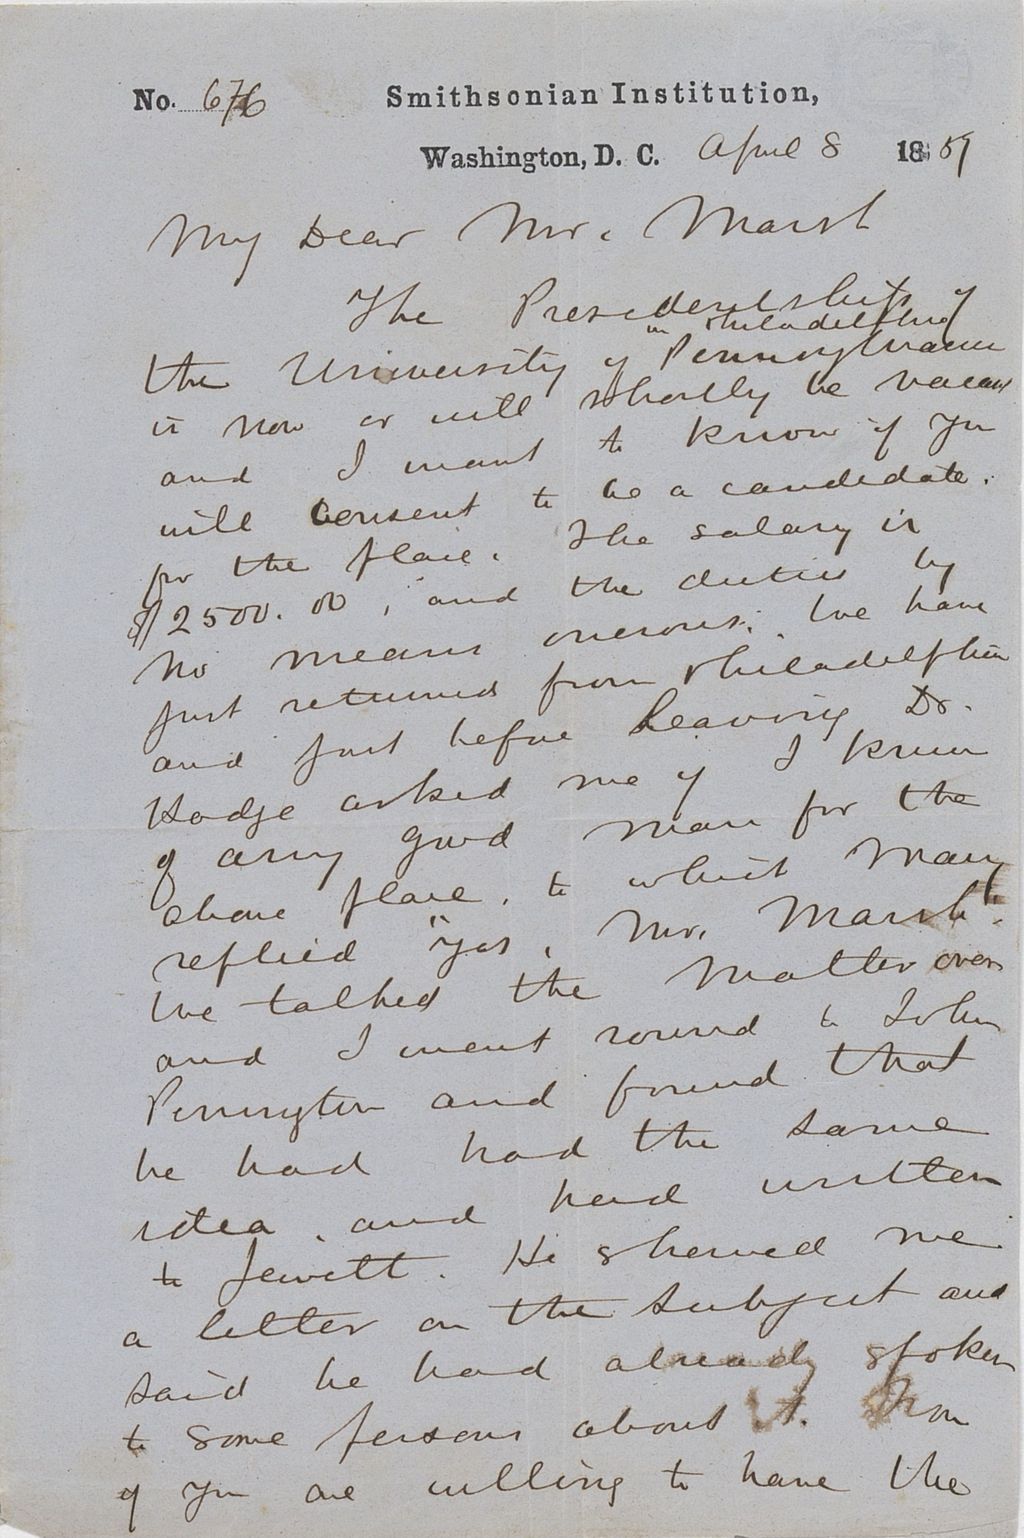 No. 676 Smithsonian Institution,
Washington, D. C. April 8 1859
My Dear Mr. Marsh
The Presidentship of
in Philadelphia
the University of Pennsylvania
is now or will shortly be vacant
and I want to know if you
will consent to be a candidate.
for the place. The salary is
$2500.00, and the duties by
no means onerous. We have
just returned from Philadelphia
and just before leaving Dr.
Hodge asked me if I knew
of any good man for the
above place, to which Mary
replied "Yes, Mr. Marsh".
We talked the matter over
and I went round to John
Pennington and found that
he had had the same
idea, and had written
to Jewett. He shewed me
a letter on the subject and
said he had already spoken
to some persons about it. Now
if you are willing to have the